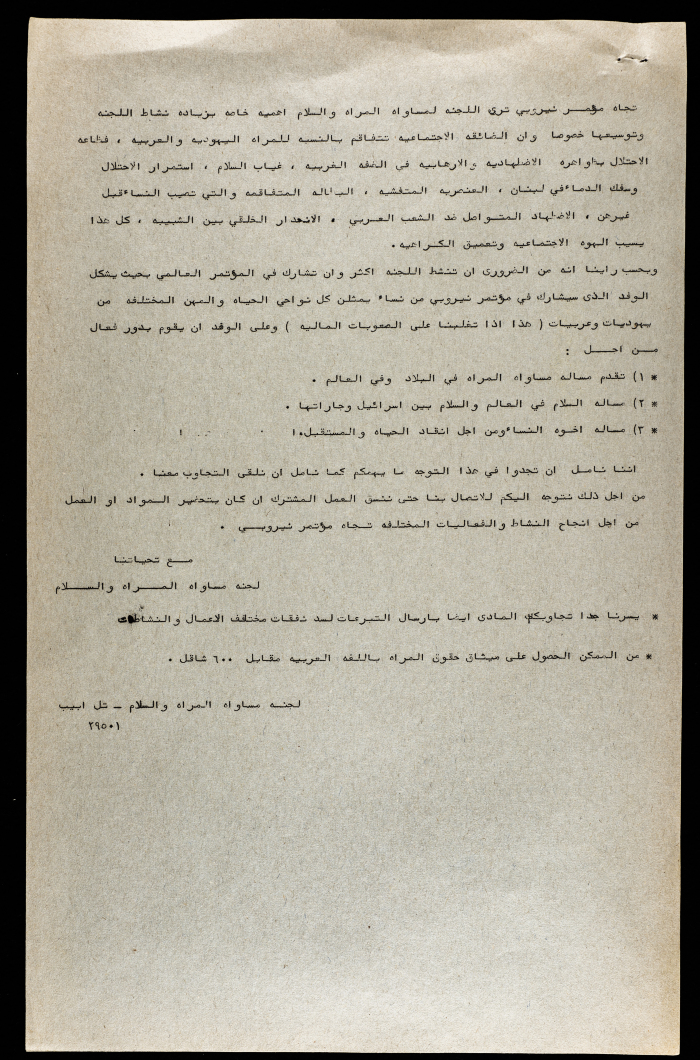 تجاه مؤتمر نيروبي ترى اللجنه لمساواه المراه والسلام اهميه خاصه بزياده نشاط اللجنه
وتوسيعها خصوصا وان الضائقه الاجتماعيه تتفاقم بالنسبه للمراه اليهوديه والعربيه ، فظاعه
الاحتلال بظواهره الاضطهاديه والارهابيه في الضفه الغربيه ، غياب السلام ، استمرار الاحتلال
وسفك الدماء في لبنان ، العنصريه المتفشيه ، البطاله المتفاقمه والتي تصيب النساء قبل
غيرهن ، الاضطهاد المتواصل ضد الشعب العربي ، الانحدار الخلقي بين الشبيبه ، كل هذا
يسبب الهوه الاجتماعيه وتعميق الكراهيه .
وبحسب راينا انه من الضرورى ان تنشط اللجنه اكثر وان تشارك في المؤتمر العالمي بحيث يشكل
الوفد الذى سيشارك في مؤتمر نيروبي من نساء يمثلن كل نواحي الحياه والمهن المختلفه من
يهوديات وعربيات ( هذا اذا تغلبنا على الصعوبات الماليه ) وعلى الوفد ان يقوم بدور فعال
من اجل :
* ١) تقدم مساله مساواه المراه في البلاد وفي العالم .
* ٢) مساله السلام في العالم والسلام بين اسرائيل وجاراتها .
* ٣) مساله اخوه النساء ومن اجل انقاد الحياه والمستقبل .١
اننا نامل ان تجدوا في هذا التوجه ما يهمكم كما نامل ان نلقى التجاوب معنا .
من اجل ذلك نتوجه اليكم للاتصال بنا حتى ننسق العمل المشترك ان كان بتحضير المواد او العمل
من اجل انجاح النشاط والفعاليات المختلفه تجاه مؤتمر نيروبي .
مع تحياتنا
لجنه مساواه المراه والسلام
* يسرنا جدا تجاوبكم المادى ايضا بارسال التبرعات لسد نفقات مختلف الاعمال والنشاطات
* من الممكن الحصول على ميثاق حقوق المراه باللغه العربيه مقابل ٦٠٠ شاقل .
لجنه مساواه المراه والسلام - تل ابيب
٢٩٥٠١